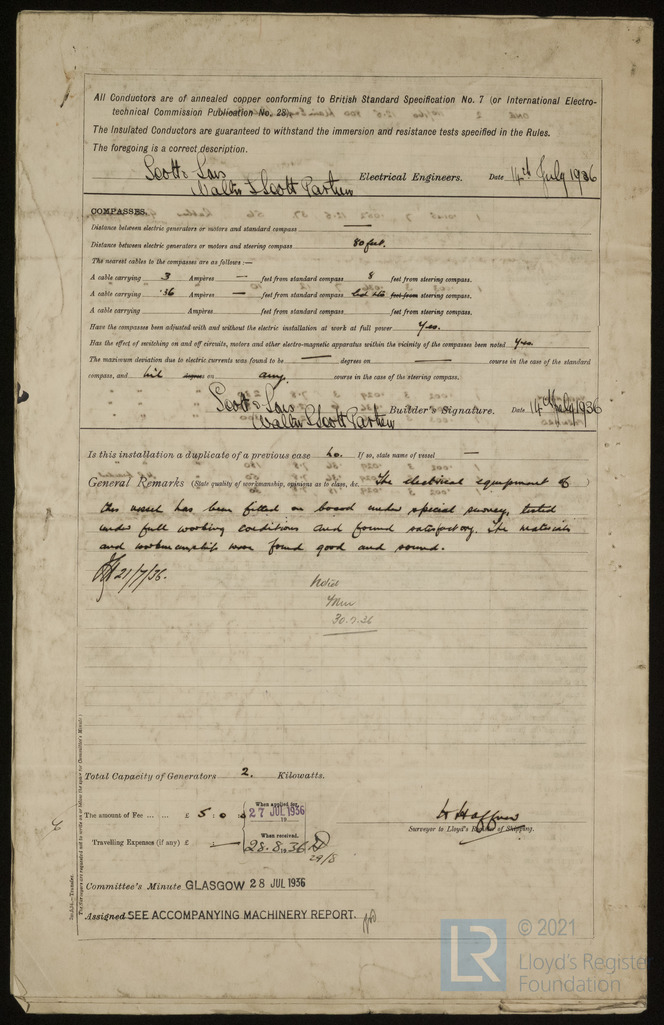 All Conductors are of annealed copper conforming to British Standard Specification No. 7 (or International Electro-
technical Commission Publication No. 28).
The Insulated Conductors are guaranteed to withstand the immersion and resistance tests specified in the Rules.
The foregoing is a correct description.
Scott & Sons
Walter & Scott Partner Electrical Engineers. Date 14th July 1936
COMPASSES.
Distance between electric generators or motors and standard compass —
Distance between electric generators or motors and steering compass 80 feet.
The nearest cables to the compasses are as follows:—
A cable carrying 3 Ampères — feet from standard compass 8 feet from steering compass.
A cable carrying .36 Ampères — feet from standard compass led into feet from steering compass.
A cable carrying Ampères feet from standard compass feet from steering compass.
Have the compasses been adjusted with and without the electric installation at work at full power Yes.
Has the effect of switching on and off circuits, motors and other electro-magnetic apparatus within the vicinity of the compasses been noted Yes.
The maximum deviation due to electric currents was found to be — degrees on — course in the case of the standard
compass, and nil degrees on any course in the case of the steering compass.
Scott & Sons
Walter & Scott Partner Builder's Signature. Date 14th July 1936
Is this installation a duplicate of a previous case No. If so, state name of vessel —
General Remarks (State quality of workmanship, opinions as to class, &c. The electrical equipment of )
this vessel has been fitted on board under special survey, tested
under full working conditions and found satisfactory. The materials
and workmanship were found good and sound.
21/7/36.
Noted
30.7.36
Total Capacity of Generators 2. Kilowatts.
The amount of Fee ... ... £ 5 : 0 :
When applied for,
27 JUL 1936
19
Travelling Expenses (if any) £ : — :
When received,
28.8.1936
29/8
Surveyor to Lloyd's Register of Shipping.
Committee's Minute GLASGOW 28 JUL 1936
Assigned SEE ACCOMPANYING MACHINERY REPORT.
(The Surveyors are requested not to write on or below the space for Committee's Minute.)
LR
© 2021
Lloyd's Register
Foundation